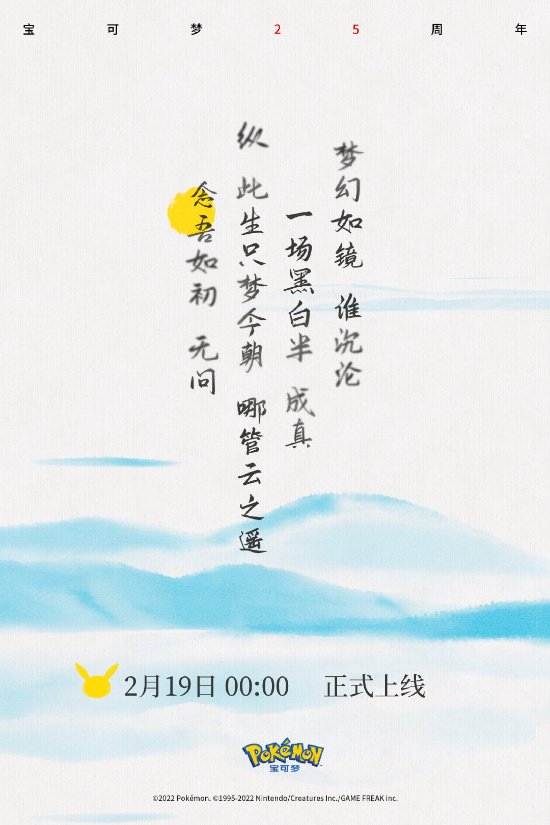 宝可梦25周年
梦幻如镜 谁沉沦
一场黑白半 成真
纵 此生只梦今朝 哪管云之遥
念吾如初 无问
2月19日 00:00 正式上线
POKéMON
宝可梦
©2022 Pokémon. ©1995-2022 Nintendo/Creatures Inc./GAME FREAK inc.